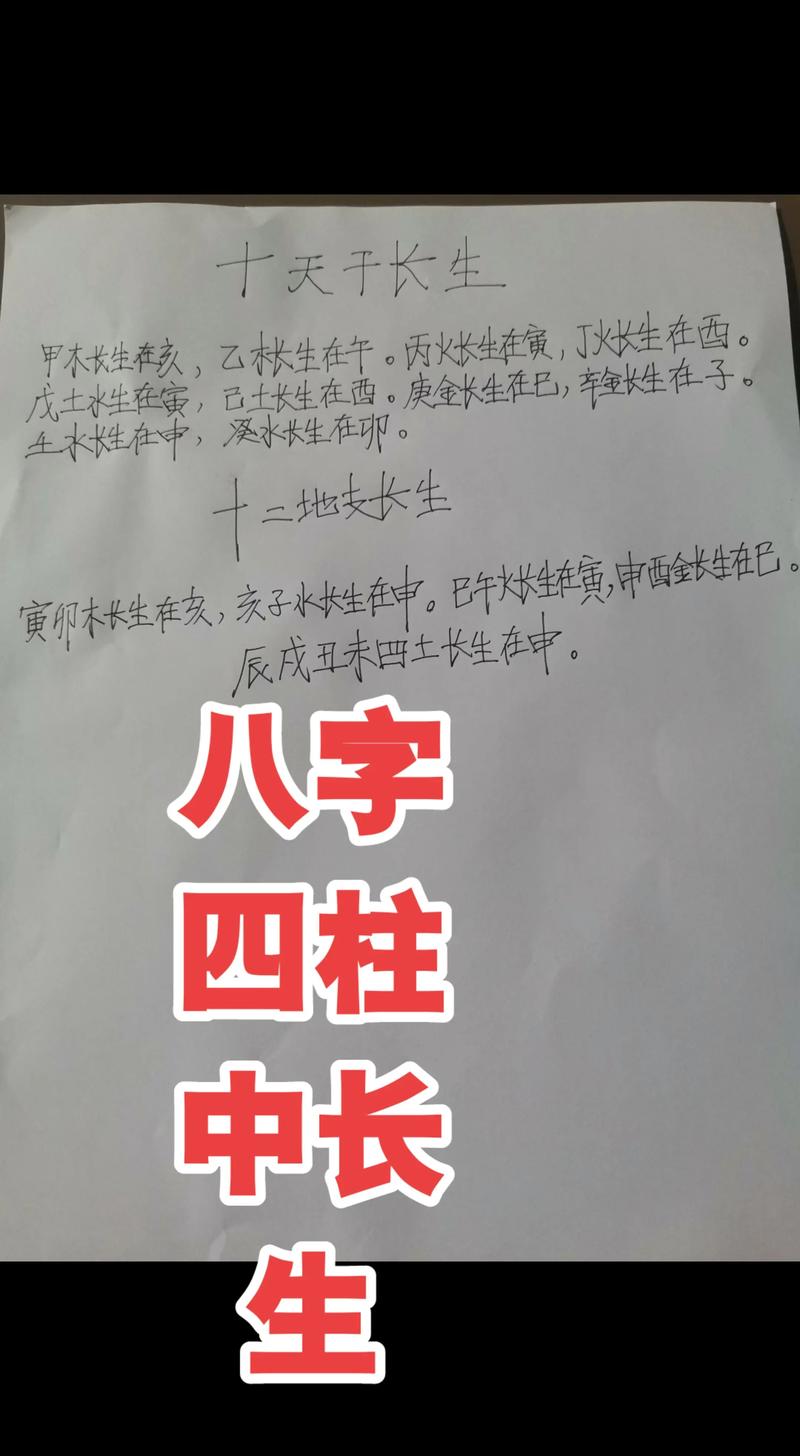 十天干长生
甲木长生在亥，乙木长生在午。丙火长生在寅，丁火长生在酉。
戊土水生在寅，己土长生在酉。庚金长生在巳，辛金长生在子。
壬水长生在申，癸水长生在卯。
十二地支长生
寅卯木长生在亥，亥子水长生在申。巳午火长生在寅，申酉金长生在巳。
辰戌丑未四土长生在申。
八字
四柱
中长
生